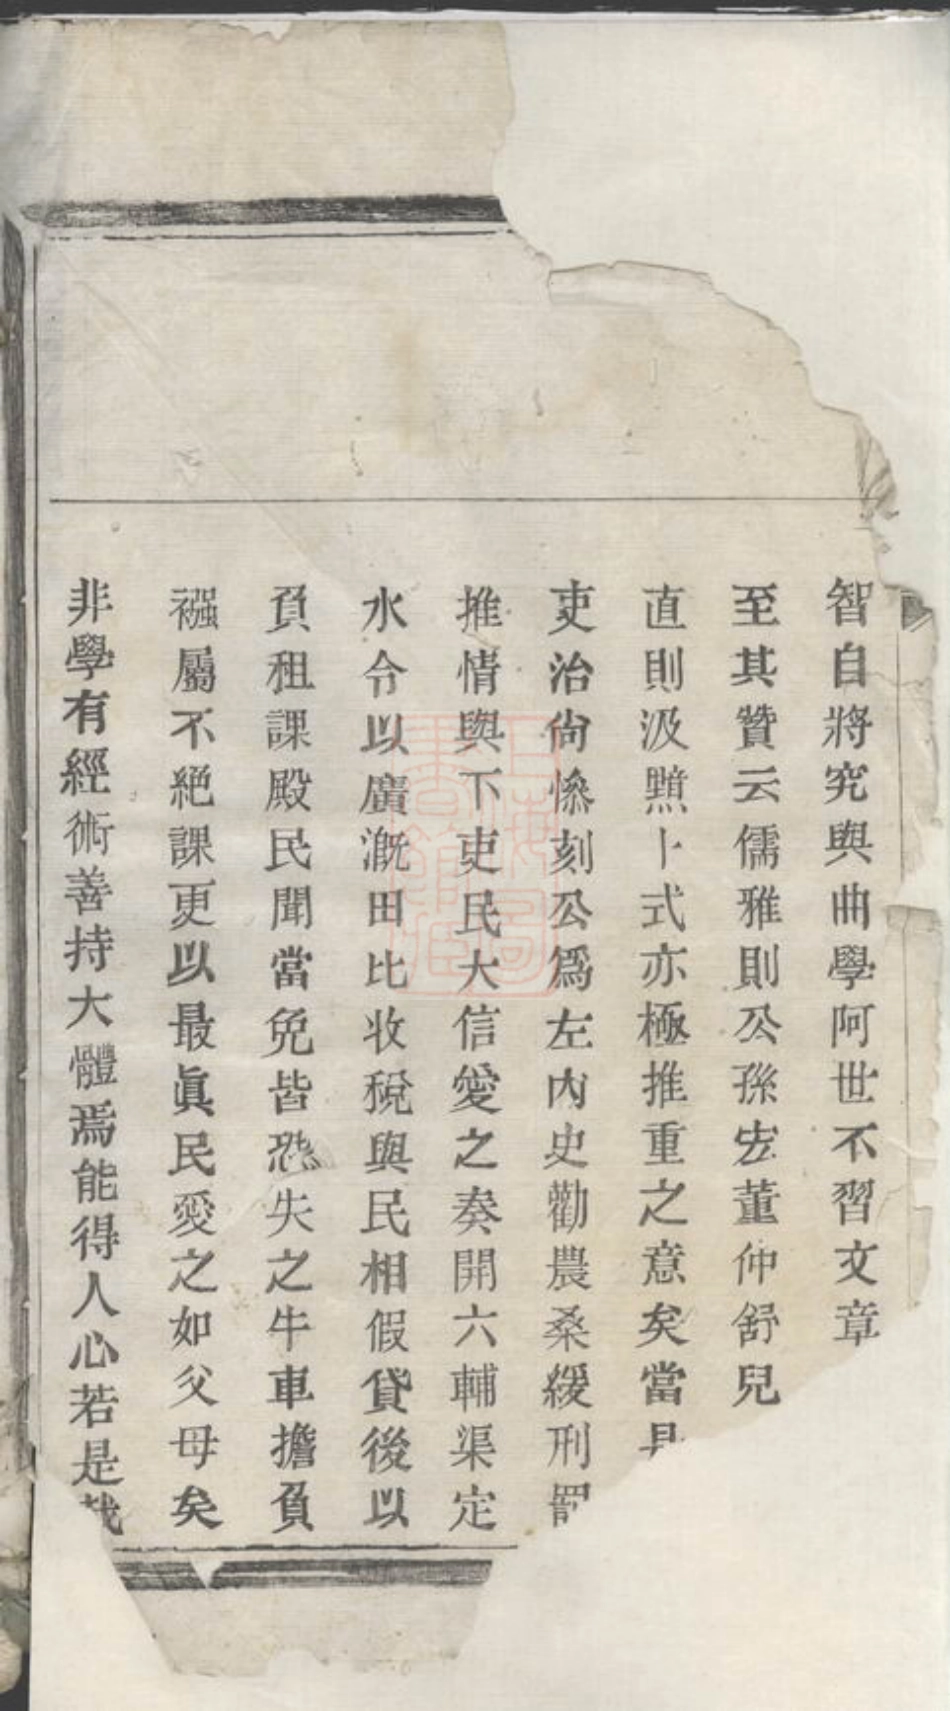 智自將究與曲學阿世不習文章
至其贊云儒雅則公孫宏董仲舒兒
直則汲黯卜式亦極推重之意矣當
吏治尙慘刻公爲左內史勸農桑緩刑罰
推情與下吏民大信愛之奏開六輔渠定
水令以廣漑田比收稅與民相假貸後以
負租課殿民聞當免皆恐失之牛車擔負
襁屬不絕課更以最眞民愛之如父母矣
非學有經術善持大體焉能得人心若是哉
上海圖書館藏